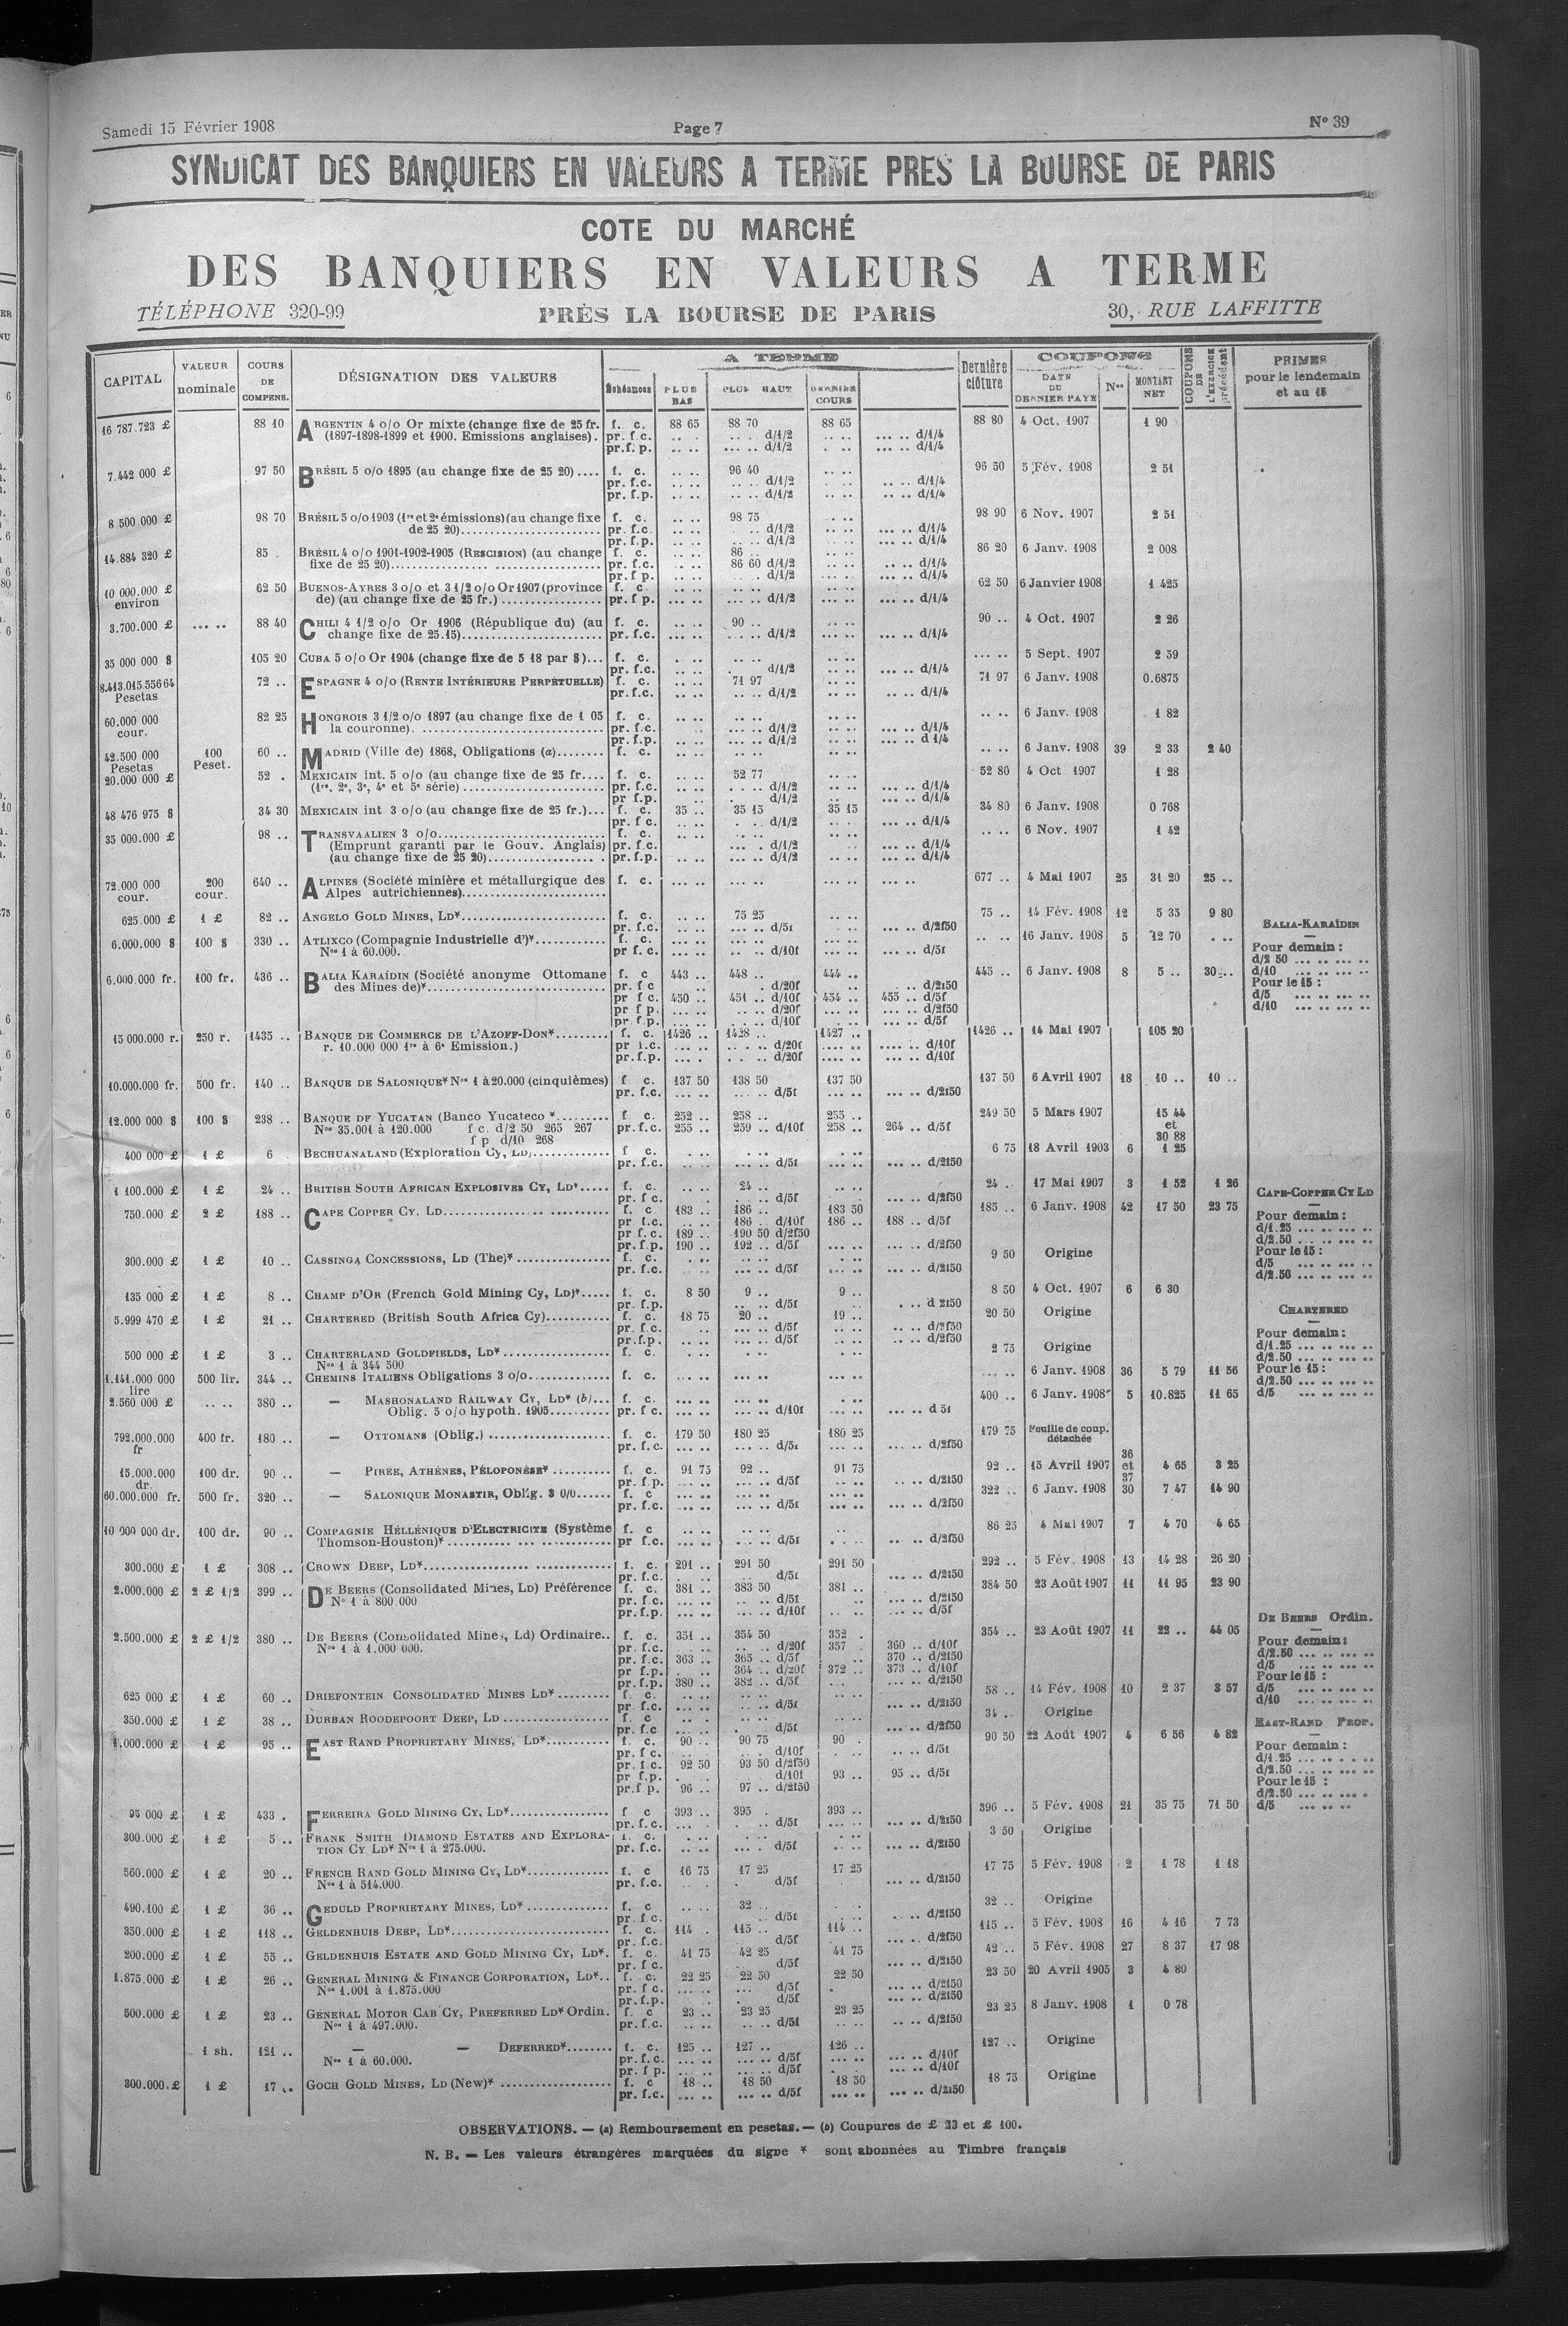 Samedi 15 Février 1908
Page 7
N° 39
SYNDICAT DES BANQUIERS EN VALEURS A TERME PRES LA BOURSE DE PARIS
COTE DU MARCHÉ
DES BANQUIERS EN VALEURS A TERME
TÉLÉPHONE 320-99 PRÈS LA BOURSE DE PARIS 30, RUE LAFFITTE
CAPITAL VALEUR nominale COURS DE COMPENS. DÉSIGNATION DES VALEURS A TERME Échéances PLUS BAS PLUS HAUT DERNIER COURS Dernière clôture COUPONS DATE DU DERNIER PAYÉ Nos MONTANT NET COUPONS DE L'EXERCICE précédent PRIMES pour le lendemain et au 15
16 787.723 £ 88 10 ARGENTIN 4 o/o Or mixte (change fixe de 25 fr. f. c. 88 65 88 70 88 65 88 80 4 Oct. 1907 1 90
(1897-1898-1899 et 1900. Emissions anglaises). pr. f.c. .. .. ... .. d/1/2 .. .. ... .. d/1/4
pr.f. p. .. .. ... .. d/1/2 . .. ... .. d/1/4
7.442 000 £ 97 50 BRÉSIL 5 o/o 1895 (au change fixe de 25 20).... f. c. .. .. 96 40 .. .. 96 50 5 Fév. 1908 2 51
pr. f.c. .. .. .. .. d/1/2 .. .. .. .. d/1/4
pr. f.p. .. .. .. .. d/1/2 .. .. .. .. d/1/4
8 500 000 £ 98 70 BRÉSIL 5 o/o 1903 (1re et 2e émissions) (au change fixe f. c. .. .. 98 75 . .. 98 90 6 Nov. 1907 2 51
de 25 20) pr. f.c. .. .. . .. d/1/2 .. .. ... .. d/1/4
pr. f.p. .. .. .. .. d/1/2 .. .. ... .. d/1/4
14.884 320 £ 85 . BRÉSIL 4 o/o 1901-1902-1905 (RESCISION) (au change f. c. .. .. 86 .. 86 20 6 Janv. 1908 2 008
fixe de 25 20) pr. f.c. .. .. 86 60 d/1/2 .. .. .. .. d/1/4
pr. f p. .. .. . .. d/1/2 .. .. ... .. d/1/4
10 000.000 £ 62 50 BUENOS-AYRES 3 o/o et 3 1/2 o/o Or 1907 (province f. c. ... .. ... .. 62 50 6 Janvier 1908 1 425
environ de) (au change fixe de 25 fr.) pr. f p. ... .. ... .. d/1/2 ... .. ... .. d/1/4
3.700.000 £ ... .. 88 40 CHILI 4 1/2 o/o Or 1906 (République du) (au f. c. ... .. 90 .. 90 .. 4 Oct. 1907 2 26
change fixe de 25.15) pr. f.c. ... .. ... .. d/1/2 .. .. ... .. d/1/4
35 000 000 $ 105 20 CUBA 5 o/o Or 1904 (change fixe de 5 18 par $)... f. c. ... .. 5 Sept. 1907 2 59
pr. f.c. .. .. . d/1/2 .. .. ... .. d/1/4
8.413.015.556 64 72 .. ESPAGNE 4 o/o (RENTE INTÉRIEURE PERPÉTUELLE) f. c. .. .. 71 97 71 97 6 Janv. 1908 0.6875
Pesetas pr. f.c. .. .. .. .. d/1/2 .. .. .. .. d/1/4
60.000 000 82 25 HONGROIS 3 1/2 o/o 1897 (au change fixe de 1 05 f. c. .. .. .. .. 6 Janv. 1908 1 82
cour. la couronne) pr. f.c. .. .. ... .. d/1/2 .. .. ... .. d/1/4
pr. f.p. .. .. ... .. d/1/2 .. .. ... .. d 1/4
42.500 000 100 60 .. MADRID (Ville de) 1868, Obligations (a)........ f. c. .. .. .. .. 6 Janv. 1908 39 2 33 2 40
Pesetas Peset.
20.000 000 £ 52 . MEXICAIN int. 5 o/o (au change fixe de 25 fr.... f. c. .. .. 52 77 52 80 4 Oct 1907 1 28
(1re. 2e, 3e, 4e et 5e série) pr. f.c. .. .. . .. d/1/2 .. .. ... .. d/1/4
pr f.p. .. . .. d/1/2 .. .. ... .. d/1/4
48 476 975 $ 34 30 MEXICAIN int 3 o/o (au change fixe de 25 fr.)... f. c. 35 .. 35 15 35 15 34 80 6 Janv. 1908 0 768
pr. f c. .. .. . .. d/1/2 .. .. ... .. d/1/4
35 000.000 £ 98 .. TRANSVAALIEN 3 o/o f. c. .. .. .. .. 6 Nov. 1907 1 42
(Emprunt garanti par le Gouv. Anglais) pr. f.c. ... . d/1/2 ... .. d/1/4
(au change fixe de 25 20) pr. f.p. .. .. ... .. d/1/2 .. .. ... .. d/1/4
72.000 000 200 640 .. ALPINES (Société minière et métallurgique des f. c. ... .. ... .. ... .. ... .. 677 .. 4 Mai 1907 25 31 20 25 ..
cour. cour. Alpes autrichiennes)
625.000 £ 1 £ 82 .. ANGELO GOLD MINES, LD* f. c. .. .. 75 25 75 .. 14 Fév. 1908 12 5 35 9 80
pr. f.c. .. .. ... .. d/5f .. .. ... .. d/2f50
6.000.000 $ 100 $ 330 .. ATLIXCO (Compagnie Industrielle d')* f. c. ... .. .. .. 16 Janv. 1908 5 12 70 . ...
Nos 1 à 60.000. pr f. c. ... .. .. .. d/10f ... .. ... .. d/5f
BALIA-KARAÏDIN
Pour demain :
d/2 50 ... .. ... ..
d/10 ... .. ... ..
Pour le 15 :
d/5 ... .. ... ..
d/10 ... .. ... ..
6.000.000 fr. 100 fr. 436 .. BALIA KARAÏDIN (Société anonyme Ottomane f. c 443 .. 448 .. 444 .. 445 .. 6 Janv. 1908 8 5 .. 30 ..
des Mines de)* pr. f c ... .. . .. d/20f .. .. .. d/2f50
pr f c. 450 .. 451 .. d/10f 454 .. 455 .. d/5f
pr f p. ... .. .. .. d/20f .. ... .. d/2f50
pr. f.p. ... .. . .. d/10f ... .. ... .. d/5f
15 000.000 r. 250 r. 1435 .. BANQUE DE COMMERCE DE L'AZOFF-DON* f. c. 1426 .. 1428 .. 1427 .. 1426 .. 14 Mai 1907 105 20
r. 10.000 000 1re à 6e Emission.) pr f.c. ... .. . .. d/20f .... .. .... .. d/10f
pr.f.p. ... . . .. d/20f .... .. ... .. d/10f
10.000.000 fr. 500 fr. 140 .. BANQUE DE SALONIQUE* Nos 1 à 20.000 (cinquièmes) f c. 137 50 138 50 137 50 137 50 6 Avril 1907 18 10 .. 10 ..
pr. f.c. ... .. ... .. d/5f ... .. ... .. d/2f50
12.000 000 $ 100 $ 238 .. BANQUE DE YUCATAN (Banco Yucateco * f c. 252 .. 258 .. 255 .. 249 50 5 Mars 1907 15 44
Nos 35.001 à 120.000 f c. d/2 50 265 267 pr.f.c. 255 .. 259 .. d/10f 258 .. 264 .. d/5f et
f p d/10 268 30 88
400 000 £ 1 £ 6 BECHUANALAND (Exploration Cy, LD) f c. . .. 6 75 18 Avril 1903 6 1 25
pr. f.c. .. .. ... .. d/5f ... .. ... .. d/2f50
1 100.000 £ 1 £ 24 .. BRITISH SOUTH AFRICAN EXPLOSIVES CY, LD*..... f. c. .. .. 24 .. 24 .. 17 Mai 1907 3 1 52 1 26
pr. f c. .. .. . .. d/5f .. .. ... .. d/2f50
750.000 £ 2 £ 188 .. CAPE COPPER CY, LD f. c 183 .. 186 .. 183 50 185 .. 6 Janv. 1908 42 17 50 23 75
pr f.c. .. .. 186 .. d/10f 186 .. 188 .. d/5f
pr f.c. 189 .. 190 50 d/2f50
pr. f.p. 190 .. 192 .. d/5f ... .. ... .. d/2f50
CAPE-COPPER CY LD
Pour demain :
d/1.25 ... .. ... ..
d/2.50 ... .. ... ..
Pour le 15 :
d/5 ... .. ... ..
d/2.50 ... .. ... ..
300.000 £ 1 £ 10 .. CASSINGA CONCESSIONS, LD (The)* f. c. . .. 9 50 Origine
pr. f.c. .. .. ... .. d/5f ... .. ... .. d/2f50
135 000 £ 1 £ 8 .. CHAMP D'OR (French Gold Mining Cy, LD)*..... f. c. 8 50 9 .. 9 .. 8 50 4 Oct. 1907 6 6 30
pr. f.p. .. .. d/5f . .. d 2f50
5.999 470 £ 1 £ 21 .. CHARTERED (British South Africa Cy) f. c. 18 75 20 .. 19 .. 20 50 Origine
pr. f.c. .. ... .. d/5f .. .. .. .. d/2f50
pr.f.p. .. .. ... .. d/5f .. .. .. .. d/2f50
CHARTERED
Pour demain :
d/1.25 ... .. ... ..
d/2.50 ... .. ... ..
Pour le 15 :
d/2.50 ... .. ... ..
d/5 ... .. ... ..
500 000 £ 1 £ 3 .. CHARTERLAND GOLDFIELDS, LD* f. c. . .. 2 75 Origine
Nos 1 à 344 500
1.141.000 000 500 lir. 344 .. CHEMINS ITALIENS Obligations 3 o/o f. c. ... .. ... .. ... .. ... .. 6 Janv. 1908 36 5 79 11 56
lire
2.560 000 £ ... .. 380 .. — MASHONALAND RAILWAY CY, LD* (b)... f. c. ... .. 400 .. 6 Janv. 1908 5 10.825 11 65
Oblig. 5 o/o hypoth. 1905 pr. f c. ... .. ... .. d/10f ... .. ... .. d 5f
792.000.000 400 fr. 180 .. — OTTOMANS (Oblig.) f. c. 179 50 180 25 180 25 179 75 Feuille de coup. détachée
fr pr. f.c. ... .. ... .. d/5f ... .. ... .. d/2f50
15.000.000 100 dr. 90 .. — PIREE, ATHÈNES, PÉLOPONÈSE* f. c. 91 75 92 .. 91 75 92 .. 15 Avril 1907 36 et 37 4 65 3 25
dr. pr. f.p. ... .. ... .. d/5f ... .. .. .. d/2f50
60.000.000 fr. 500 fr. 320 .. — SALONIQUE MONASTIR, Oblig. 3 0/0 f. c ... .. 322 .. 6 Janv. 1908 30 7 47 14 90
pr. f.c. ... .. ... .. d/5f ... .. ... .. d/2f50
10 000 000 dr. 100 dr. 90 .. COMPAGNIE HÉLLÉNIQUE D'ELECTRICITE (Système f. c .. .. 86 25 4 Mai 1907 7 4 70 4 65
Thomson-Houston)* pr f.c. ... .. . .. d/5f . .. .. .. d/2f50
300.000 £ 1 £ 308 .. CROWN DEEP, LD* f. c. 291 .. 291 50 291 50 292 .. 5 Fév. 1908 13 14 28 26 20
pr. f.c. .. .. . .. d/5f ... .. d/2f50
2.000.000 £ 2 £ 1/2 399 .. DE BEERS (Consolidated Mines, LD) Préférence f. c. 381 .. 383 50 381 .. 384 50 23 Août 1907 11 11 95 23 90
N° 1 à 800.000 pr. f.c. ... .. ... .. d/5f .. ... .. d/2f50
pr. f.p. ... .. ... .. d/10f .. .. ... .. d/5f
2.500.000 £ 2 £ 1/2 380 .. DE BEERS (Consolidated Mines, Ld) Ordinaire.. f. c. 351 .. 354 50 352 . 354 .. 23 Août 1907 11 22 .. 44 05
Nos 1 à 1.000 000. pr. f.c. . .. .. .. d/20f 357 . 360 .. d/10f
pr. f.c. 363 .. 365 .. d/5f .. 370 .. d/2f50
pr f.p. . .. 364 .. d/20f 372 .. 373 .. d/10f
pr. f.p. 380 .. 382 .. d/5f ... ... .. d/2f50
DE BEERS Ordin.
Pour demain :
d/2.50 ... .. ... ..
d/5 ... .. ... ..
Pour le 15 :
d/5 ... .. ... ..
d/10 ... .. ... ..
625 000 £ 1 £ 60 .. DRIEFONTEIN CONSOLIDATED MINES LD* f. c. .. .. 58 .. 14 Fév. 1908 10 2 37 3 57
pr. f.c. .. .. ... .. d/5f ... .. d/2f50
350.000 £ 1 £ 38 .. DURBAN ROODEPOORT DEEP, LD f. c .. .. 34 .. Origine
pr. f.c ... .. . d/5f ... .. d/2f50
1.000.000 £ 1 £ 95 .. EAST RAND PROPRIETARY MINES, LD* f. c. 90 .. 90 75 90 . 90 50 22 Août 1907 4 6 56 4 82
pr. f c. .. .. .. d/10f . .. .. .. d/5f
pr. f.c. 92 50 93 50 d/2f50
pr f.p. . . d/10f 93 .. 95 .. d/5f
pr.f p. 96 .. 97 .. d/2f50
EAST-RAND PROP.
Pour demain :
d/1.25 ... .. ... ..
d/2.50 ... .. ... ..
Pour le 15 :
d/2.50 ... .. ... .
d/5 ... .. ..
95 000 £ 1 £ 433 . FERREIRA GOLD MINING CY, LD* f c 393 .. 395 . 393 .. 396 .. 5 Fév. 1908 21 35 75 71 50
pr. f.c. ... . . .. d/5f ... .. ... .. d/2f50
300.000 £ 1 £ 5 .. FRANK SMITH DIAMOND ESTATES AND EXPLORA- f. c. . .. 3 50 Origine
TION CY LD* Nos 1 à 275.000. pr. f.c. .. .. ... . d/5f .. .. ... .. d/2f50
560.000 £ 1 £ 20 .. FRENCH RAND GOLD MINING CY, LD* f. c 16 75 17 25 17 25 17 75 5 Fév. 1908 2 1 78 1 18
Nos 1 à 514.000. pr. f.c. .. . d/5f ... .. d/2f50
490.100 £ 1 £ 36 .. GEDULD PROPRIETARY MINES, LD* f. c .. .. 32 .. 32 .. Origine
pr. f c. .. .. d/5f .. .. d/2f50
350.000 £ 1 £ 118 .. GELDENHUIS DEEP, LD* f. c. 114 . 115 .. 114 .. 115 .. 5 Fév. 1908 16 4 16 7 73
pr. f.c. d/5f ... .. d/2f50
200.000 £ 1 £ 55 .. GELDENHUIS ESTATE AND GOLD MINING CY, LD*. f. c. 41 75 42 25 41 75 42 .. 5 Fév. 1908 27 8 37 17 98
pr. f c. .. .. d/5f ... .. d/2f50
1.875.000 £ 1 £ 26 .. GENERAL MINING & FINANCE CORPORATION, LD*.. f. c. 22 25 22 50 22 50 23 50 20 Avril 1905 3 4 80
Nos 1.001 à 1.875.000 pr. f c. ... .. ... d/5f . ... .. d/2f50
pr. f.p. . d/5f ... .. d/2f50
500.000 £ 1 £ 23 .. GENERAL MOTOR CAB CY, PREFERRED LD* Ordin. f. c 23 .. 23 25 23 25 23 25 8 Janv. 1908 1 0 78
Nos 1 à 497.000. pr. f.c. .. .. .. .. d/5f .. .. .. .. d/2f50
1 sh. 121 .. — — DEFERRED* f. c. 125 .. 127 .. 126 .. 127 .. Origine
Nos 1 à 60.000. pr. f. c. ... .. ... .. d/5f ... .. ... .. d/10f
pr. f p. ... .. .. .. d/5f . . ... .. d/10f
300.000 £ 1 £ 17 .. GOCH GOLD MINES, LD (New)* f. c 18 .. 18 50 18 50 18 75 Origine
pr. f.c. ... .. ... .. d/5f ... .. ... .. d/2f50
OBSERVATIONS. — (a) Remboursement en pesetas. — (b) Coupures de £ 20 et £ 100.
N. B. — Les valeurs étrangères marquées du signe * sont abonnées au Timbre français